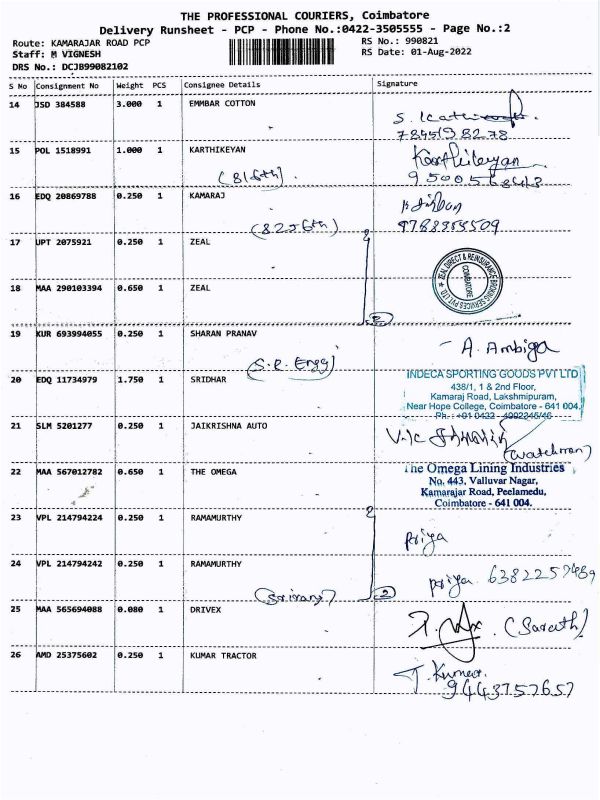 THE PROFESSIONAL COURIERS, Coimbatore
Delivery Runsheet - PCP - Phone No.:0422-3505555 - Page No.:2
Route: KAMARAJAR ROAD PCP
RS No.: 990821
Staff: M VIGNESH
RS Date: 01-Aug-2022
DRS No.: DCJB99082102
S No Consignment No Weight PCS Consignee Details Signature
14 JSD 384588 3.000 1 EMMBAR COTTON
15 POL 1518991 1.000 1 KARTHIKEYAN Karthikeyan
16 EDQ 20869788 0.250 1 KAMARAJ
17 UPT 2075921 0.250 1 ZEAL
ZEAL DIRECT & REINSURANCE BROKING SERVICES PVT LTD.
COIMBATORE
18 MAA 290103394 0.650 1 ZEAL
2
19 KUR 693994055 0.250 1 SHARAN PRANAV
- A. Ambiga
(S.R. Engg)
20 EDQ 11734979 1.750 1 SRIDHAR
INDECA SPORTING GOODS PVT LTD
438/1, 1 & 2nd Floor,
Kamaraj Road, Lakshmipuram,
Near Hope College, Coimbatore - 641 004.
Ph.: +91 0432 - 4992245/46
21 SLM 5201277 0.250 1 JAIKRISHNA AUTO
(watchman)
22 MAA 567012782 0.650 1 THE OMEGA
The Omega Lining Industries
No. 443, Valluvar Nagar,
Kamarajar Road, Peelamedu,
Coimbatore - 641 004.
23 VPL 214794224 0.250 1 RAMAMURTHY
Priya
24 VPL 214794242 0.250 1 RAMAMURTHY
priya 6382257489
2
25 MAA 565694088 0.080 1 DRIVEX
(Sarath)
26 AMD 25375602 0.250 1 KUMAR TRACTOR
T. Kumar
9443757657